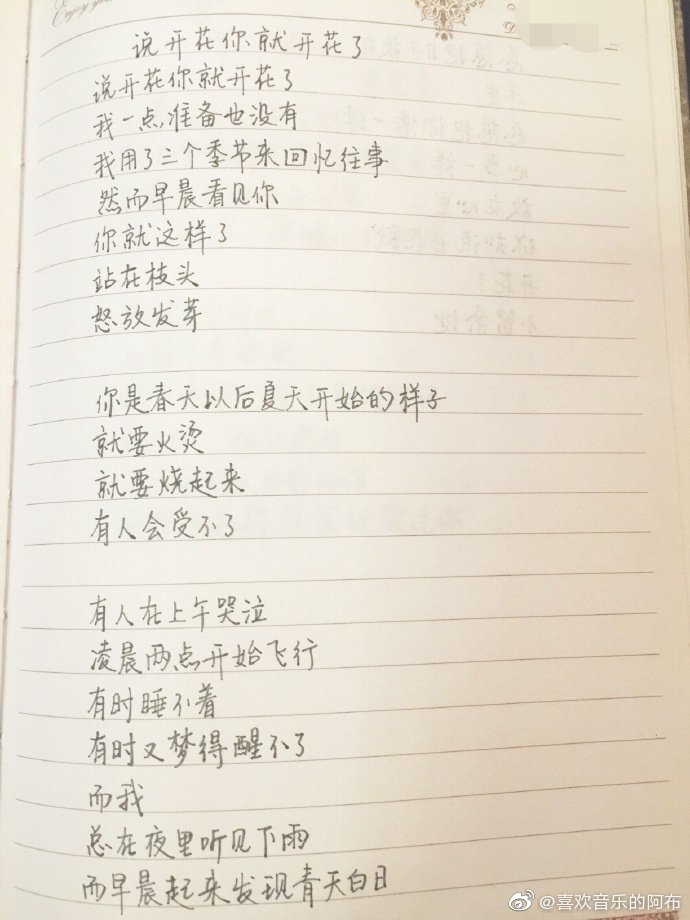 Enjoy
说开花你就开花了
说开花你就开花了
我一点准备也没有
我用了三个季节来回忆往事
然而早晨看见你
你就这样了
站在枝头
怒放发芽
你是春天以后夏天开始的样子
就要火烫
就要烧起来
有人会受不了
有人在上午哭泣
凌晨两点开始飞行
有时睡不着
有时又梦得醒不了
而我
总在夜里听见下雨
而早晨起来发现青天白日
@喜欢音乐的阿布